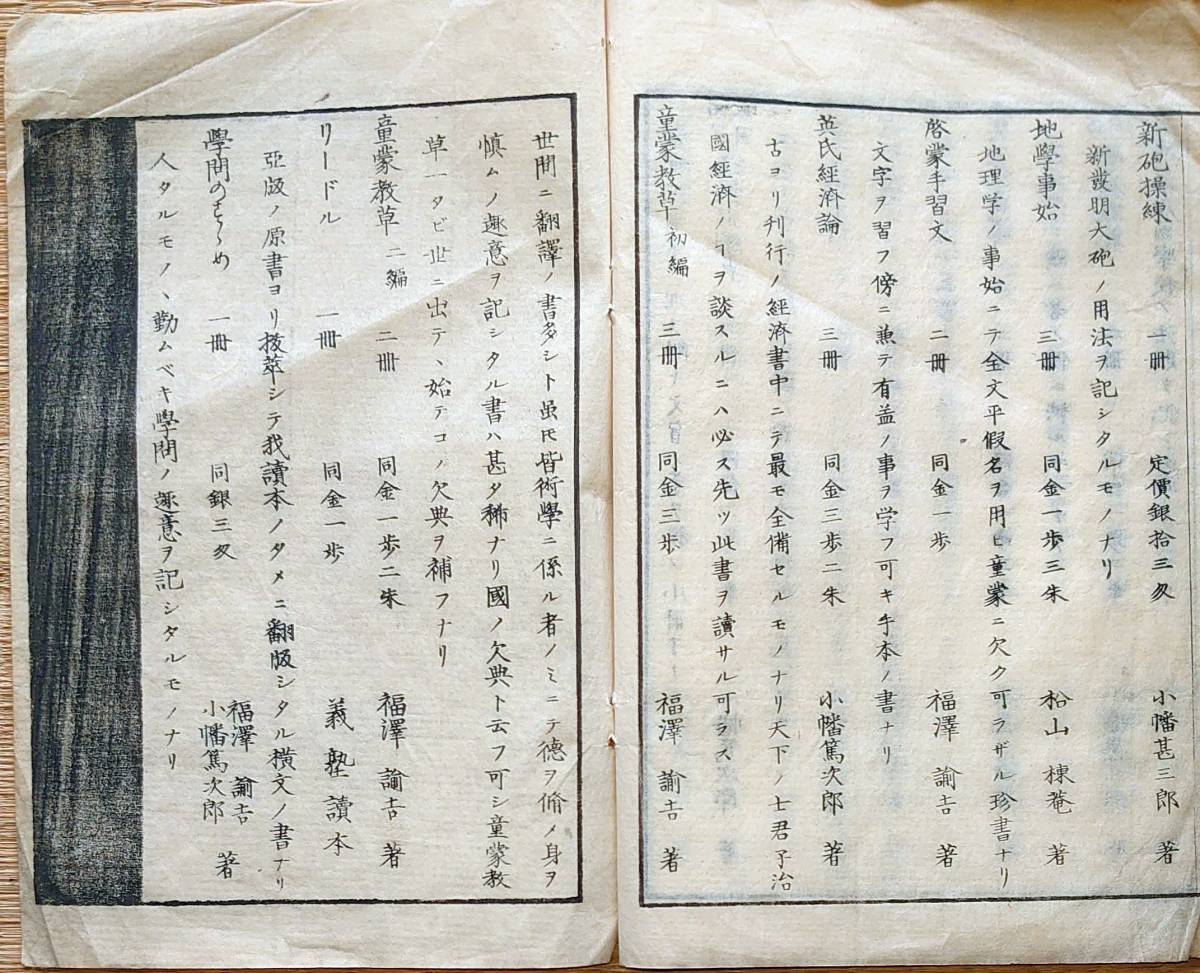 新砲操練 一冊 定價銀拾三匁 小幡甚三郎 著
新發明大砲ノ用法ヲ記シタルモノナリ
地學事始 三冊 同金一歩三朱 松山棟菴 著
地理学ノ事始ニテ全文平假名ヲ用ヒ童蒙ニ欠ク可ラザル珍書ナリ
啓蒙手習文 二冊 同金一歩 福澤諭吉 著
文字ヲ習フ傍ニ兼テ有益ノ事ヲ学フ可キ手本ノ書ナリ
英氏經濟論 三冊 同金三歩二朱 小幡篤次郎 著
古ヨリ刊行ノ經濟書中ニテ最モ全備セルモノナリ天下ノ士君子治
國經濟ノヿヲ談スルニハ必ス先ツ此書ヲ讀サル可ラス
童蒙教草初編 三冊 同金三歩 福澤諭吉 著
世間ニ翻譯ノ書多シト虽𪜈皆術學ニ係ル者ノミニテ德ヲ脩メ身ヲ
慎ムノ趣意ヲ記シタル書ハ甚タ稀ナリ國ノ欠典ト云フ可シ童蒙教
草一タビ世ニ出テヽ始テコノ欠典ヲ補フナリ
童蒙教草二編 二冊 同金一歩二朱 福澤諭吉 著
リードル 一冊 同金一歩 義塾讀本
亞版ノ原書ヨリ抜萃シテ我讀本ノタメニ翻版シタル横文ノ書ナリ
學問のすゝめ 一冊 同銀三匁 福澤諭吉 小幡篤次郎 著
人タルモノヽ勤ムベキ學問ノ趣意ヲ記シタルモノナリ